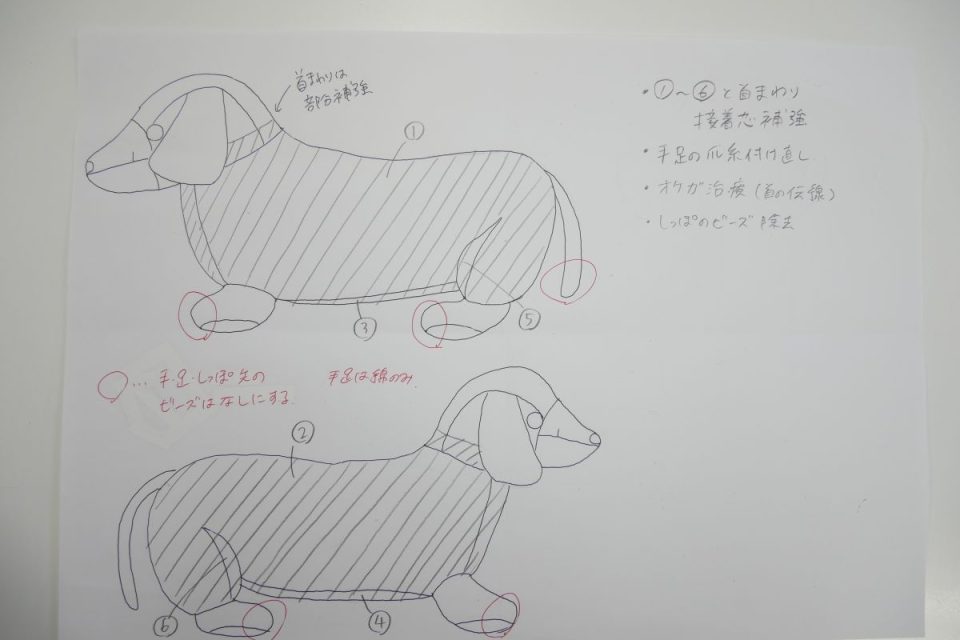 首まわりは
部分補強
①
・①～⑥と首まわり
接着芯補強
・手足の爪糸付け直し
・オケガ治療(首の伝線)
・しっぽのビーズ除去
③
⑤
○…手・足・しっぽ先の
ビーズはなしにする.
手足は線のみ.
②
⑥
④